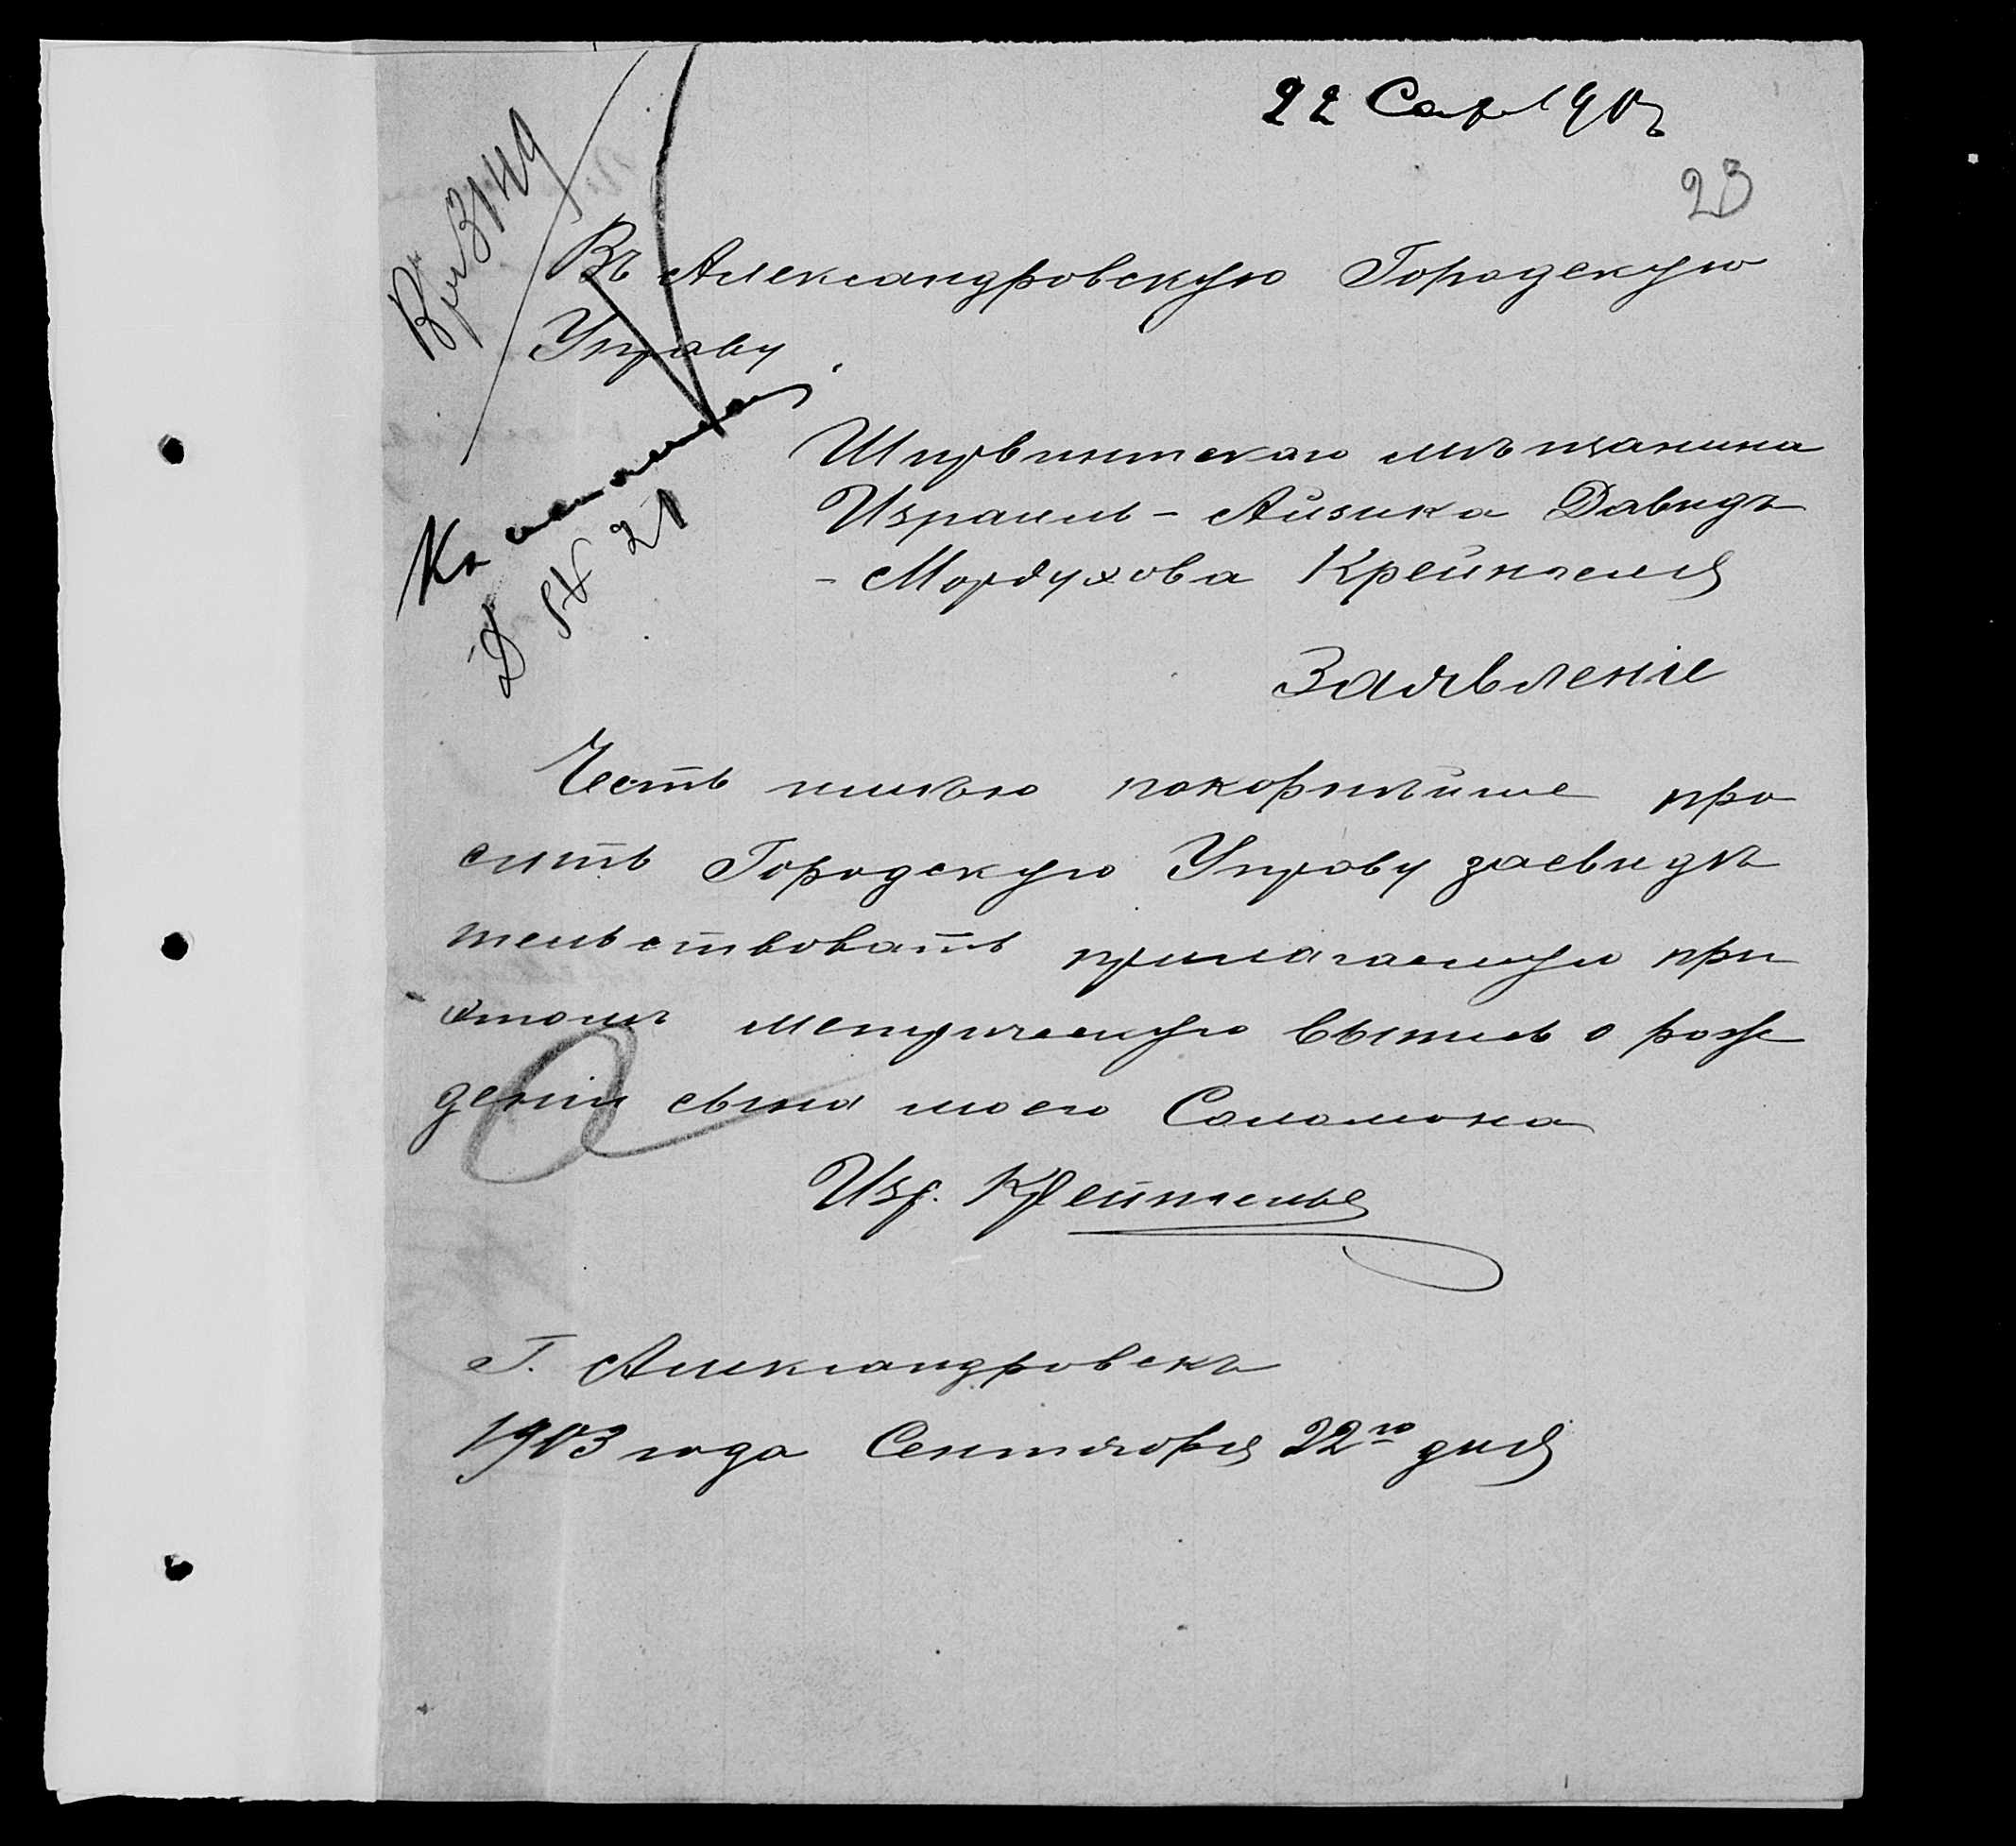 22 Сент 1903
23
Вх 3149
Въ Александровскую Городскую
Управу
Ширвинтскаго мѣщанина
Израиль - Айзика Давидъ
- Мордухова Крейнгеля
Заявленіе
Честь имѣю покорнѣйше про
сить Городскую Управу засвидѣ
тельствовать прилагаемую при
этомъ метрическую выпись о рож
деніи сына моего Соломона
Изр. Крейнгель
Г. Александровскъ
1903 года Сентября 22го дня